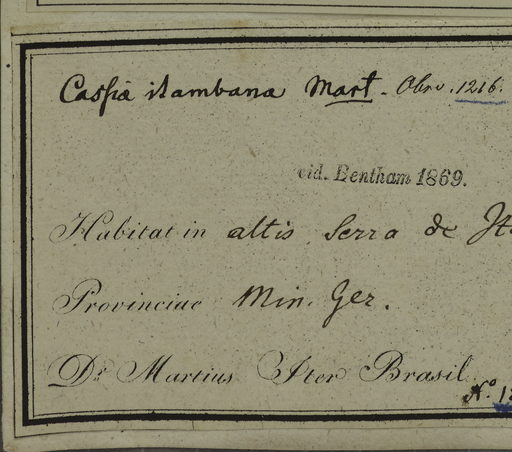 Cassia itambana Mart. Obsv. 1216.
vid. Bentham 1869.
Habitat in altis Serra de
Provinciae Min. Ger.
Dr. Martius Iter Brasil.
No.